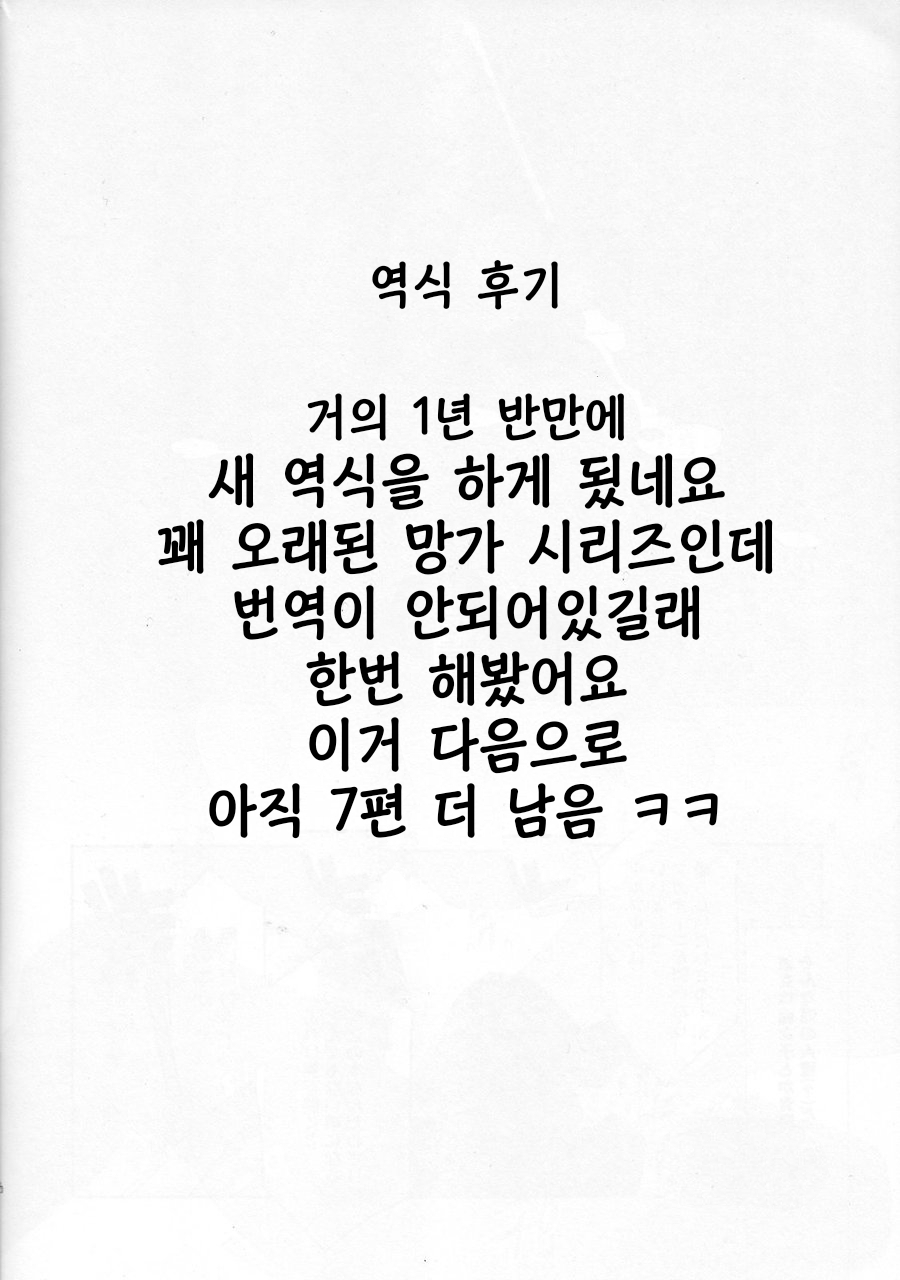 역식 후기
거의 1년 반만에
새 역식을 하게 됬네요
꽤 오래된 망가 시리즈인데
번역이 안되어있길래
한번 해봤어요
이거 다음으로
아직 7편 더 남음 ㅋㅋ